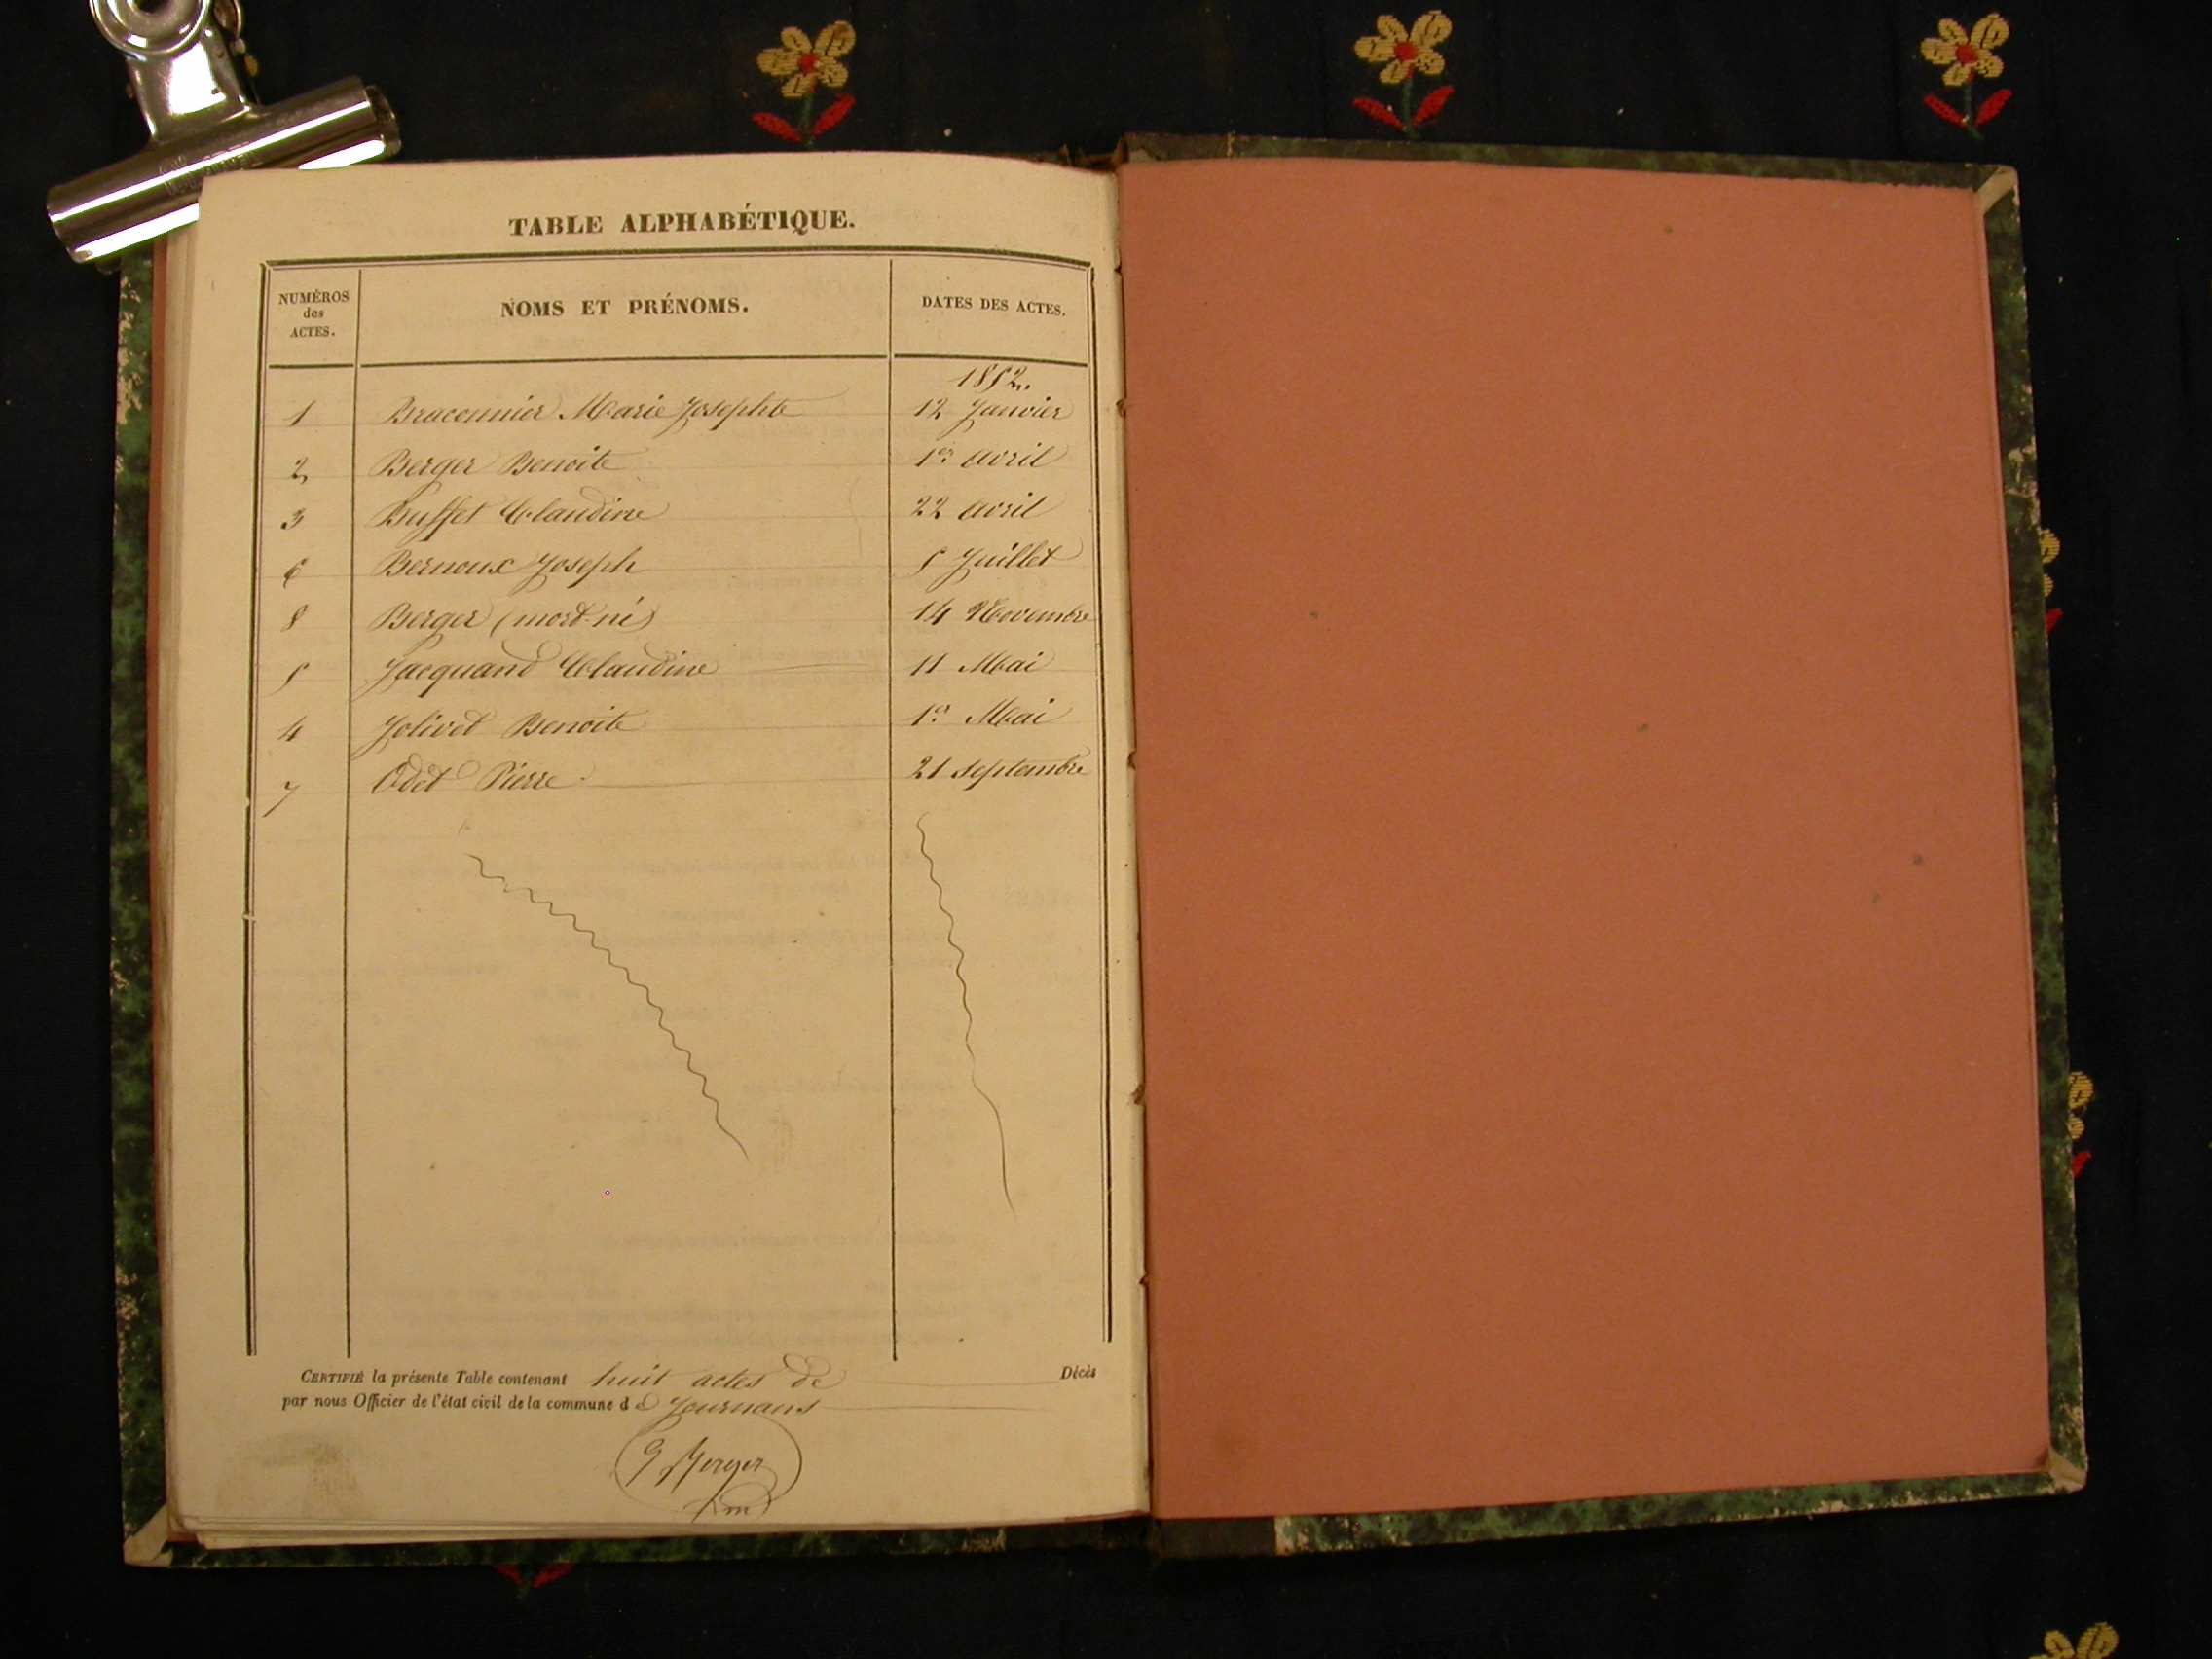 TABLE ALPHABÉTIQUE.
NUMÉROS des ACTES. NOMS ET PRÉNOMS. DATES DES ACTES.
1852.
1 Braconnier Marie Josephte 12 Janvier
2 Berger Benoite 1er avril
3 Buffet Claudine 22 avril
6 Bernoux Joseph 5 Juillet
8 Berger (mort-né) 14 Novembre
5 Jacquand Claudine 11 Mai
4 Jolivet Benoite 1er Mai
7 Odet Pierre 21 septembre
CERTIFIÉ la présente Table contenant huit actes de Décès
par nous Officier de l'état civil de la commune d e Journans
Berger